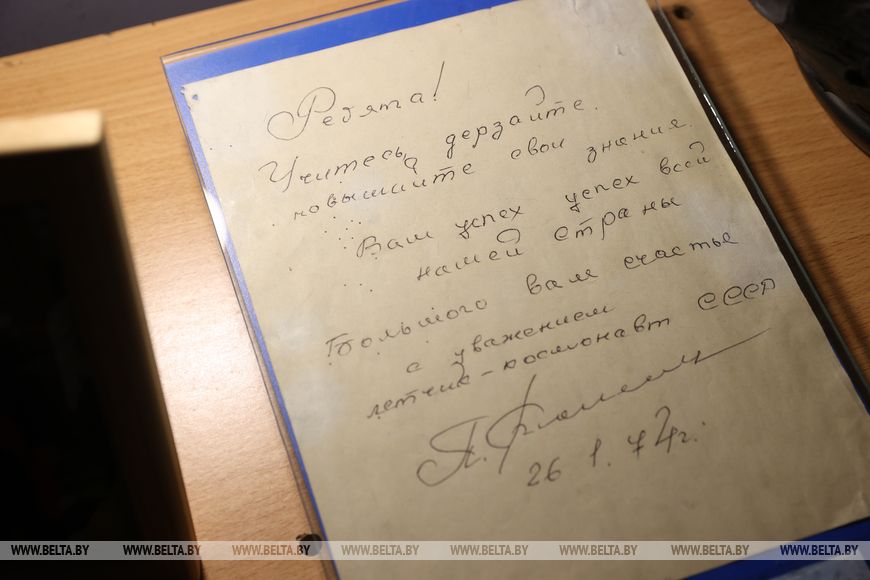 Ребята!
Учитесь, дерзайте.
повышайте свои знания.
Ваш успех успех всей
нашей страны
Большого вам счастье
с уважением
летчик-космонавт СССР
26 1. 74г.
WWW.BELTA.BY WWW.BELTA.BY WWW.BELTA.BY WWW.BELTA.BY WWW.BELTA.BY WWW.BELTA.BY WWW.BELTA.BY WWW.BELTA.BY